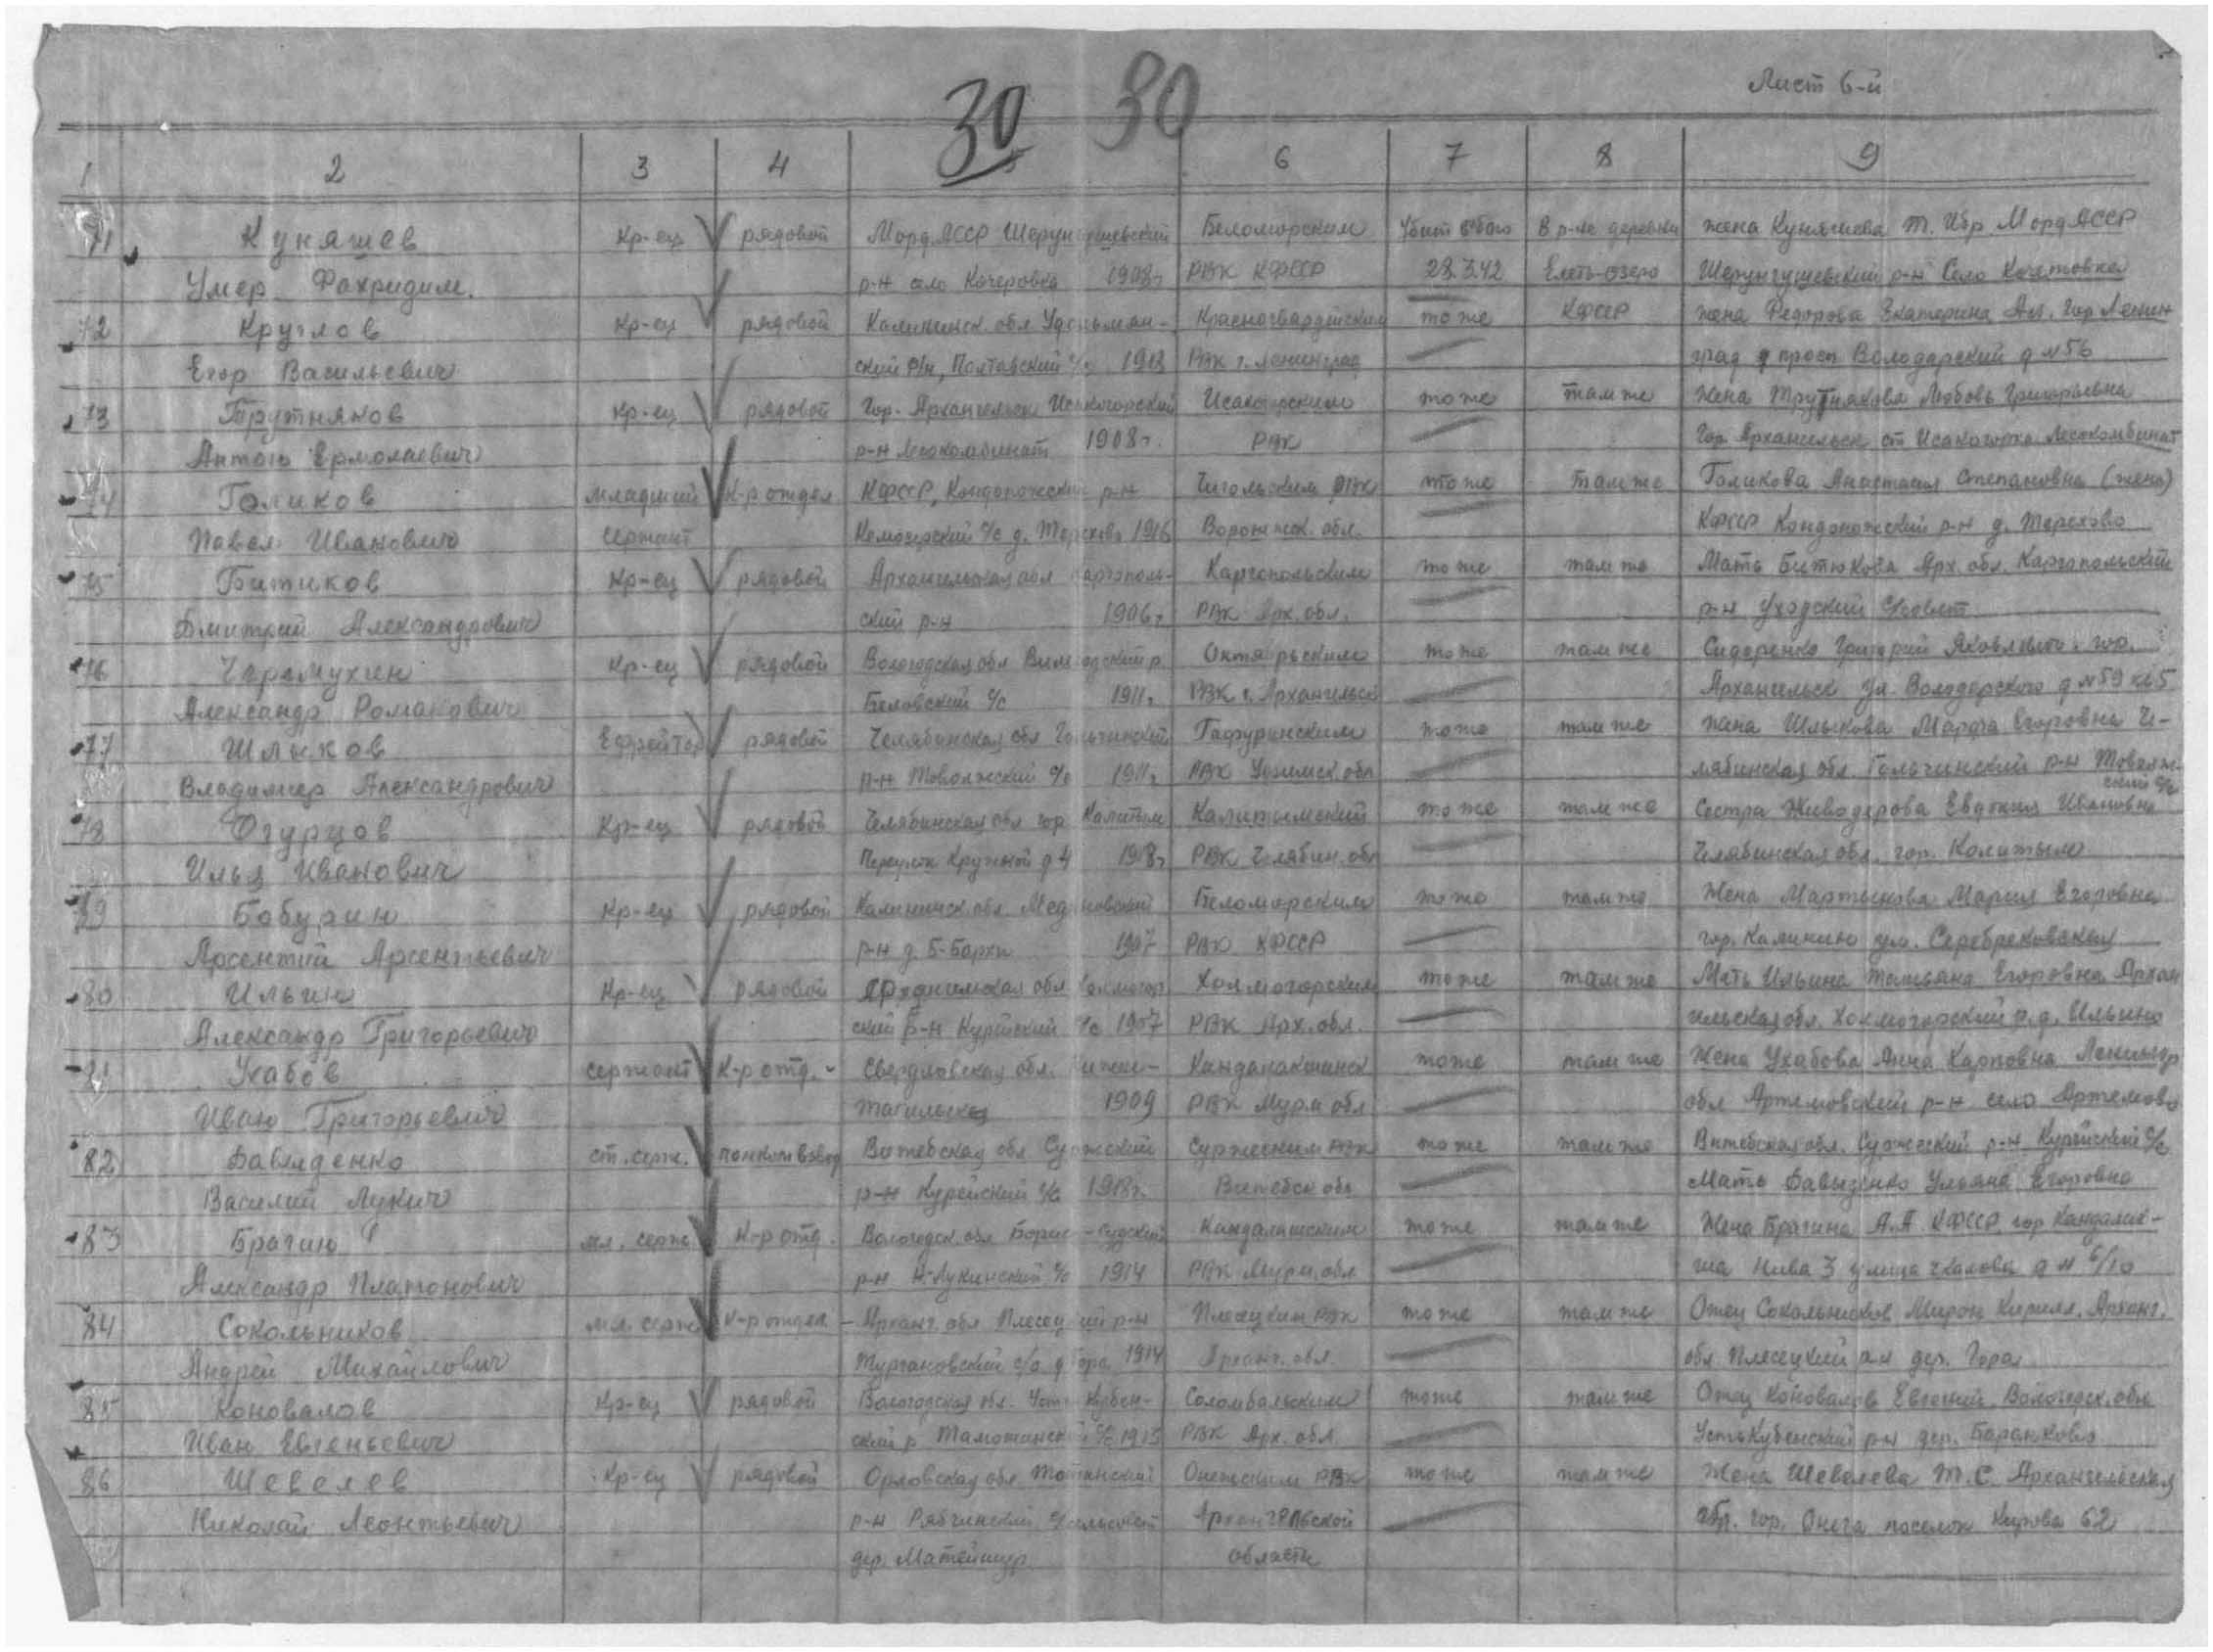 Лист 6-й
30 30
1 2 3 4 5 6 7 8 9
71 Куняшев Кр-ец рядовой Морд. АССР Беломорским Убит в бою В р-не деревни жена Куняшева Т. Ибр. Морд АССР
Умер Фахридим. р-н село 1908г РВК КФССР 28.3.42 Елеть-озеро р-н Село
72 Круглов Кр-ец рядовой Калининск. обл Красногвардейским то же КФССР жена Федорова Екатерина Ал. гор Ленин
Егор Васильевич ский р/н, Полтавский с/с 1913 РВК г. Ленинград град просп Володарский д №56
73 Трутняков Кр-ец рядовой Гор. Архангельск Исакогорский Исакогорским то же там же Жена Трутнякова Любовь Григорьевна
Антон Ермолаевич р-н Лесокомбинат 1908г. РВК Гор Архангельск ст Исакогорка Лесокомбинат
74 Голиков младший К-р отдел КФССР, Кондопожский р-н РВК то же там же Голикова Анастасия Степановна (жена)
Павел Иванович сержант с/с д. Терехово 1916 Воронежск. обл. КФССР Кондопожский р-н д. Терехово
75 Битюков Кр-ец рядовой Архангельская обл Каргополь- Каргопольским то же там же Мать Битюкова Арх. обл. Каргопольский
Дмитрий Александрович ский р-н 1906г РВК Арх. обл. р-н Уходский с/совет
76 Черемухин Кр-ец рядовой Вологодская обл р. Октябрьским то же там же Сидоренко Григорий Яковлевич. гор.
Александр Романович Беловский с/с 1911г РВК г. Архангельск Архангельск ул. Володарского д №59 кв 5
77 Шлыков Ефрейтор рядовой Челябинская обл Гафуринским то же там же жена Шлыкова Марфа Егоровна Че-
Владимир Александрович р-н с/с 1911г РВК Уфимск. обл лябинская обл. р-н
ский с/с
78 Огурцов Кр-ец рядовой Челябинская обл гор то же там же Сестра Живодерова Евдокия Ивановна
Илья Иванович Переулок д 4 РВК Челябин. обл Челябинская обл. гор.
79 Бобурин Кр-ец рядовой Калининск обл Беломорским то же там же Жена Мартынова Мария Егоровна
Арсентий Арсентьевич р-н д. 1907 РВК КФССР гор. Калинин ул. Серебряковская
80 Ильин Кр-ец рядовой Архангельская обл Холмогор Холмогорским то же там же Мать Ильина Татьяна Егоровна Архан
Александр Григорьевич ский р-н с/с 1907 РВК Арх. обл. гельская обл. Холмогорский р. д. Ильино
81 Ухабов сержант К-р отд. Свердловская обл. Нижне- Кандалакшинск то же там же Жена Ухабова Анна Карповна Ленингр
Иван Григорьевич тагильск 1909 РВК Мурм обл обл Артемовский р-н село Артемово
82 Давыденко ст. серж. помком взвод Витебская обл Суржеским РВК то же там же Витебская обл. р-н Курейский с/с
Василий Лукич р-н Курейский с/с 1918г. Витебск обл Мать Давыденко Ульяна Егоровна
83 Брагин мл. серж К-р отд. Вологодск. обл Борис-судский Кандалакшским то же там же Жена Брагина А.А. КФССР гор Кандалак-
Александр Платонович р-н с/с 1914 РВК Мурм. обл ша Нива 3 улица Чкалова д № 6/10
84 Сокольников мл. серж. К-р отдел. Арханг. обл Плесецкий р-н Плесецким РВК то же там же Отец Сокольников Мирон Кирилл. Арханг.
Андрей Михайлович с/с д Гора 1914 Арханг. обл. обл Плесецкий р-н дер. Гора
85 Коновалов Кр-ец рядовой Вологодская обл. Усть-Кубен- Соломбальским то же там же Отец Коновалов Евгений Вологодск. обл
Иван Евгеньевич ский р с/с 1913 РВК Арх. обл Усть Кубенский р-н дер. Баранково
86 Шевелев Кр-ец рядовой Орловская обл Онежским РВК то же там же Жена Шевелева Т.С. Архангельская
Николай Леонтьевич р-н Рябчинский сельсовет Архангельской обл. гор. Онега поселок Кирова 62
дер. области